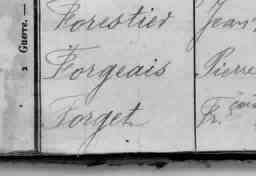 2 Guerre. —
Forestier Jean
Forgeais Pierre
Forget Fr. çois